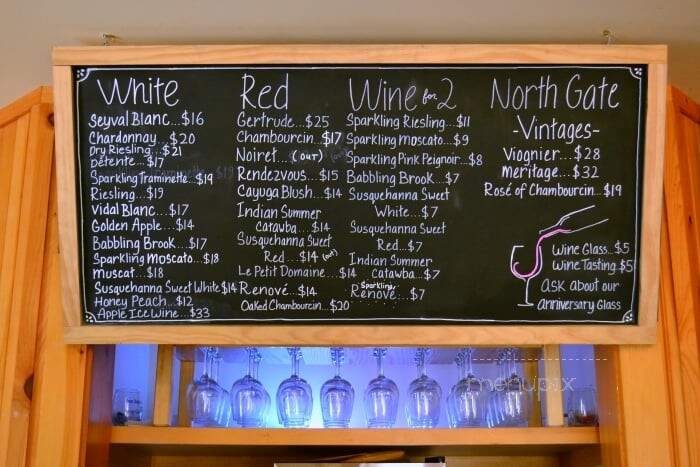 White
Seyval Blanc...$16
Chardonnay...$20
Dry Riesling...$21
Détente...$17
Sparkling Traminette...$19
Riesling...$19
Vidal Blanc...$17
Golden Apple...$14
Babbling Brook...$17
Sparkling Moscato...$18
Muscat...$18
Susquehanna Sweet White $14
Honey Peach...$12
Apple Ice Wine...$33
Red
Gertrude...$25
Chambourcin...$17
Noiret...(out)
Rendezvous...$15
Cayuga Blush...$14
Indian Summer
Catawba...$14
Susquehanna Sweet
Red...$14 (out)
Le Petit Domaine...$14
Renové...$14
Oaked Chambourcin...$20
Wine for 2
Sparkling Riesling...$11
Sparkling Moscato...$9
Sparkling Pink Peignoir...$8
Babbling Brook...$7
Susquehanna Sweet
White...$7
Susquehanna Sweet
Red...$7
Indian Summer
Catawba...$7
Sparkling
Renové...$7
North Gate
-Vintages-
Viognier...$28
Meritage...$32
Rosé of Chambourcin...$19
Wine Glass...$5
Wine Tasting $5
Ask about our
anniversary Glass
menupix